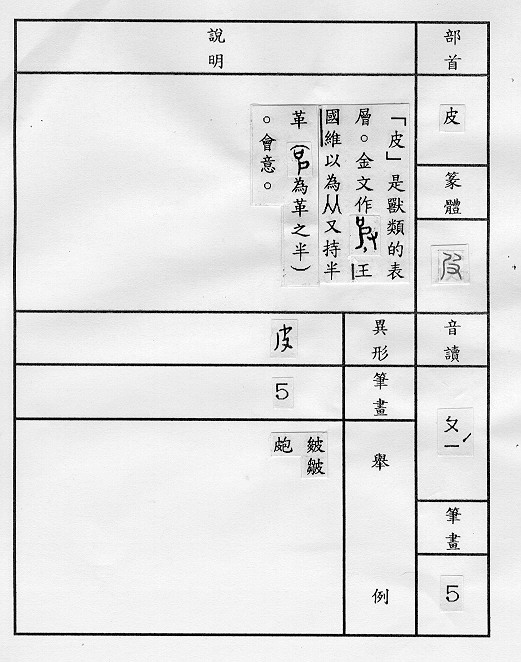 部首
皮
篆體
音讀
ㄆㄧˊ
筆畫
5
說明
「皮」是獸類的表
層。金文作 王
國維以為从又持半
革(為革之半)
。會意。
異形
皮
筆畫
5
舉例
皰